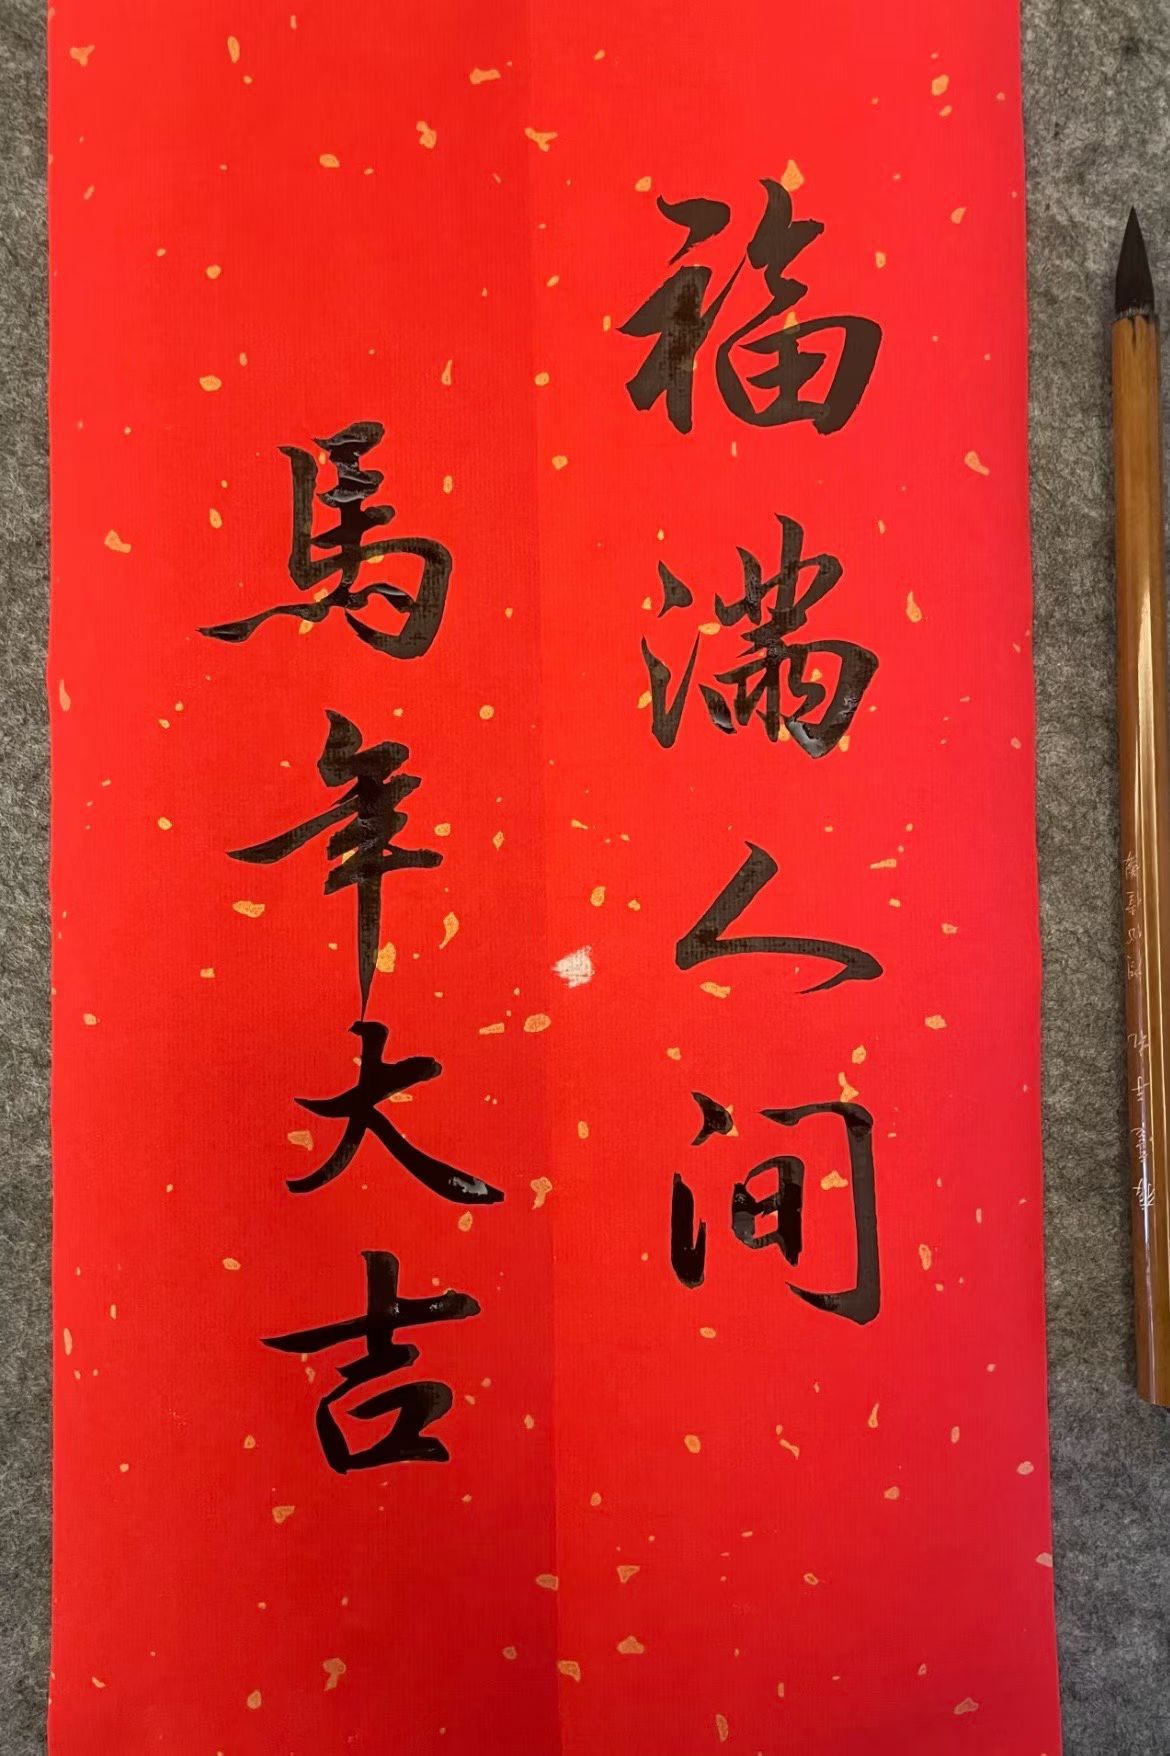 福满人间
馬年大吉